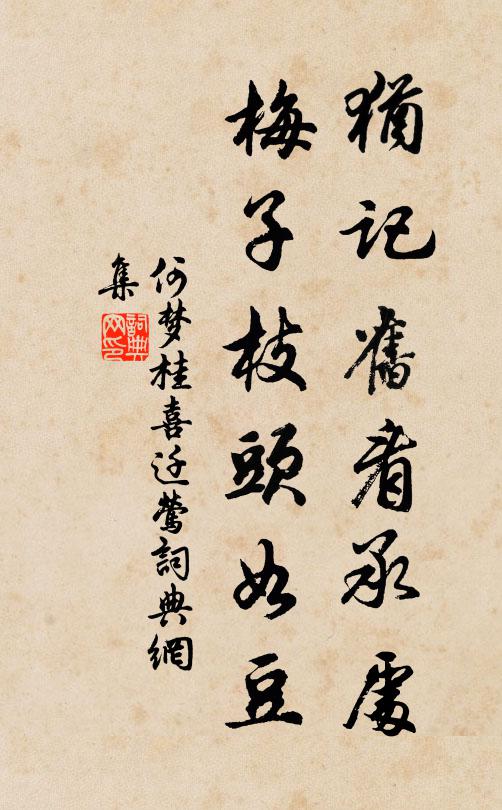 猶記舊看承處
梅子枝頭如豆
何梦桂喜迁鶯詞典網
集
詞典
网印